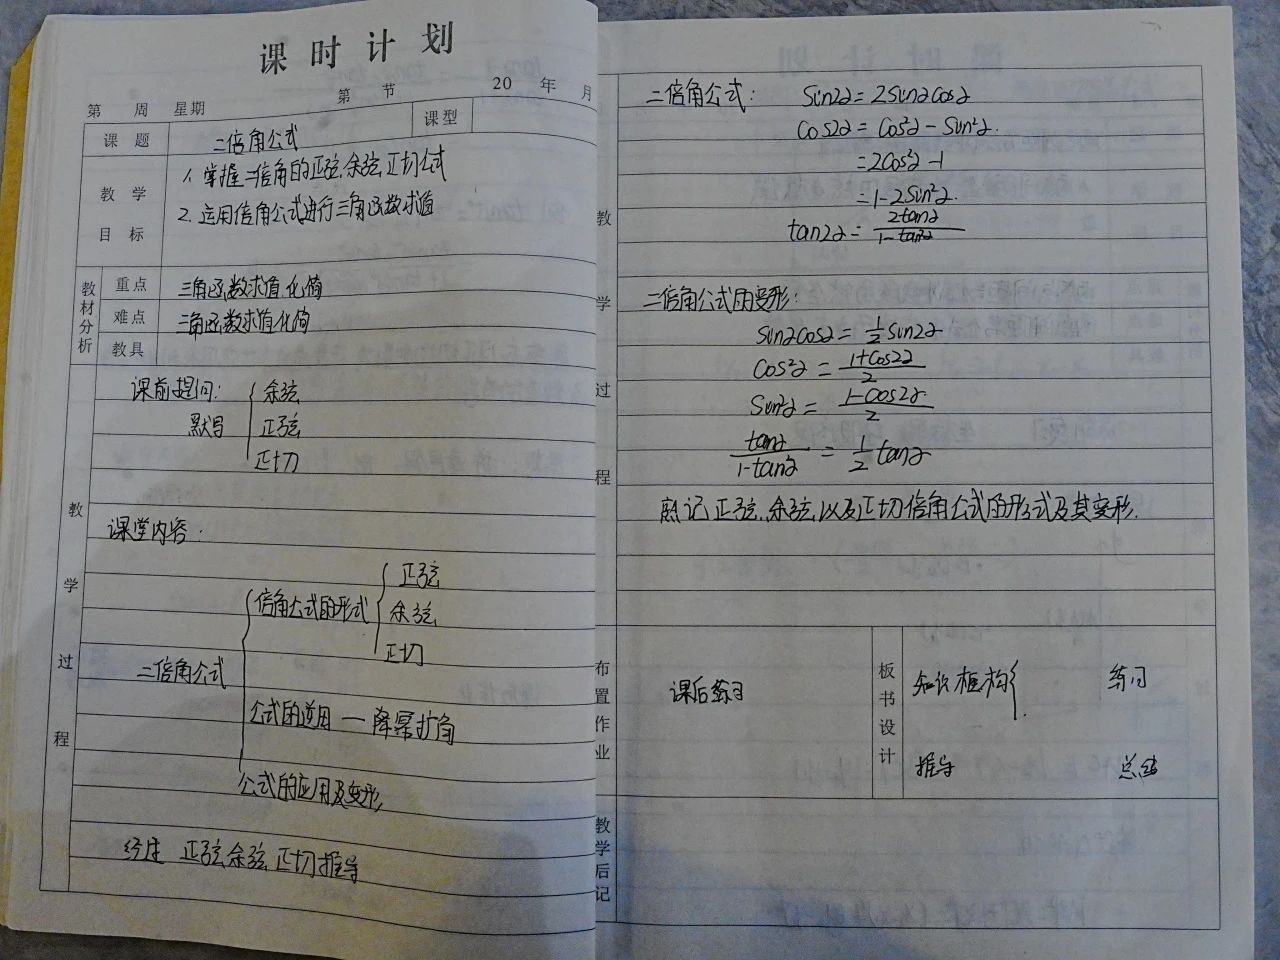 课时计划
第 周 星期 第 节 20 年 月
课题 二倍角公式 课型
教学目标
1. 掌握二倍角的正弦.余弦.正切公式
2. 运用倍角公式进行三角函数求值
教材分析
重点 三角函数求值.化简
难点 三角函数求值化简
教具
教学过程
课前提问: 余弦
默写 正弦
正切
课堂内容:
二倍角公式
倍角公式的形式
正弦
余弦
正切
公式的逆用 — 降幂扩角
公式的应用及变形
正弦.余弦.正切推导
教学过程
二倍角公式: Sin2α = 2Sinαcosα
Cos2α = Cos²α - Sin²α.
= 2Cos²α - 1
= 1 - 2Sin²α.
tan2α = 2tanα / 1-tan²α
二倍角公式的变形:
Sinαcosα = 1/2 Sin2α
Cos²α = 1+Cos2α / 2
Sin²α = 1-Cos2α / 2
tanα / 1-tan²α = 1/2 tanα
熟记正弦.余弦.以及正切倍角公式的形式及其变形.
布置作业
课后练习
板书设计
知识框构 练习
推导 总结
教学后记